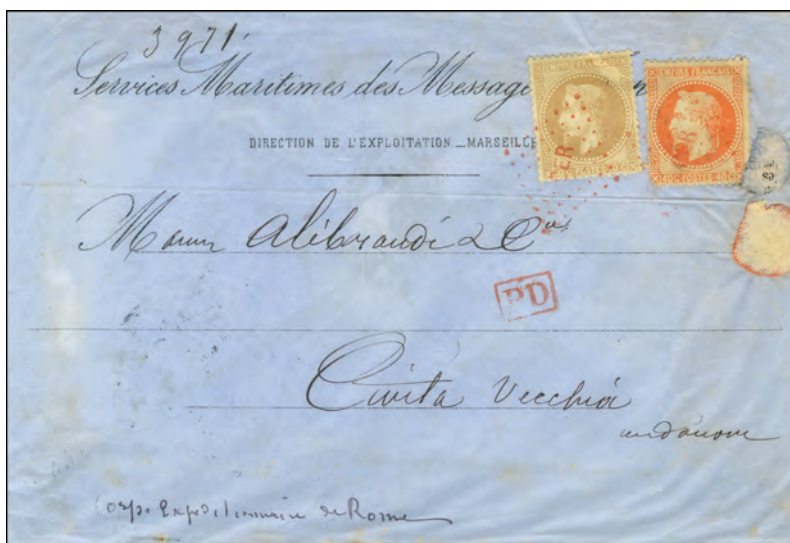 3971.
Services Maritimes des Messag
DIRECTION DE L'EXPLOITATION _ MARSEILLE
EMPIRE FRANÇAIS
EMPIRE FRANÇAIS
40 C POSTES 40 C
ER
PD
Alibrandi & Cie
Civita Vecchia
Corps Expeditionnaire de Rome